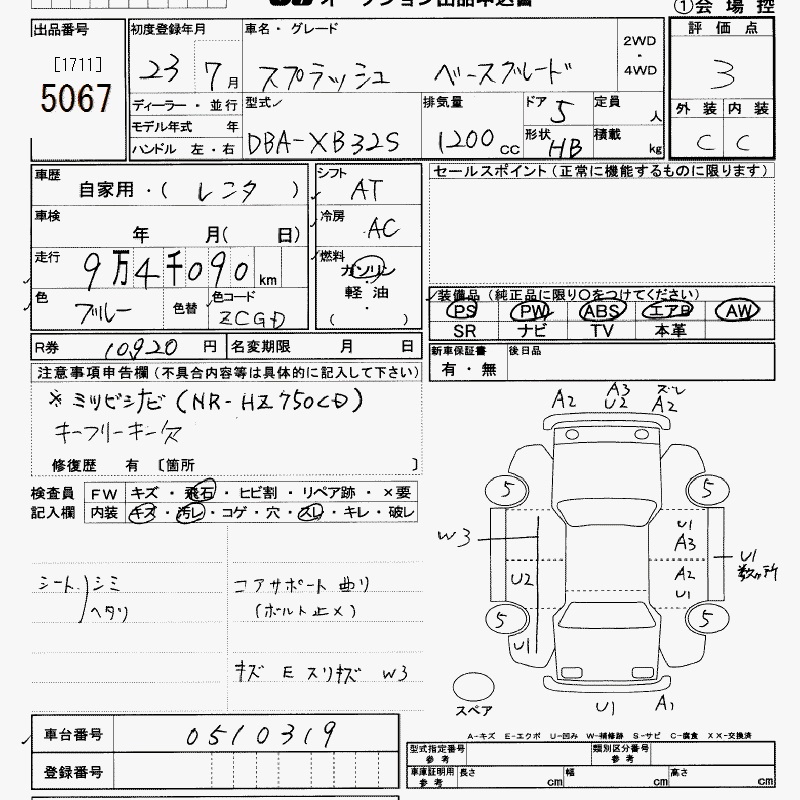 オークション出品申込書
①会場控
出品番号
[1711]
5067
初度登録年月
23 7月
ディーラー・並行
モデル年式 年
ハンドル 左・右
車名・グレード
スプラッシュ ベースグレード
2WD
・
4WD
型式
DBA-XB32S
排気量
1200 CC
ドア 5
形状 HB
定員 人
積載 kg
評価点
3
外装 内装
C C
車歴
自家用・( レンタ )
車検
年 月( 日)
走行
9万4千090 km
色
ブルー
色替
色コード
ZCGD
シフト
AT
冷房
AC
燃料
ガソリン
軽油
・
( )
セールスポイント(正常に機能するものに限ります)
装備品(純正品に限り○をつけてください)
PS PW ABS エアB AW
SR ナビ TV 本革
新車保証書
有・無
後日品
R券 10,920 円
名変期限 月 日
注意事項申告欄(不具合内容等は具体的に記入して下さい)
※ミツビシナビ(NR-HZ750CD)
キーフリーキー欠
修復歴 有 〔箇所 〕
検査員
記入欄
FW キズ・飛石・ヒビ割・リペア跡・×要
内装 キズ・汚レ・コゲ・穴・スレ・キレ・破レ
シート シミ
ヘタリ
コアサポート曲り
(ボルト止メ)
キズ E スリキズ W3
A2
A3
U2
ズレ
A2
5
5
W3
U2
U1
U1
A3
A2
U1
U1
数ヶ所
5
5
スペア
U1
A1
A-キズ E-エクボ U-凹み W-補修跡 S-サビ C-腐食 XX-交換済
車台番号
0510319
登録番号
型式指定番号
参考
類別区分番号
参考
車庫証明用
参考
長さ cm
幅 cm
高さ cm